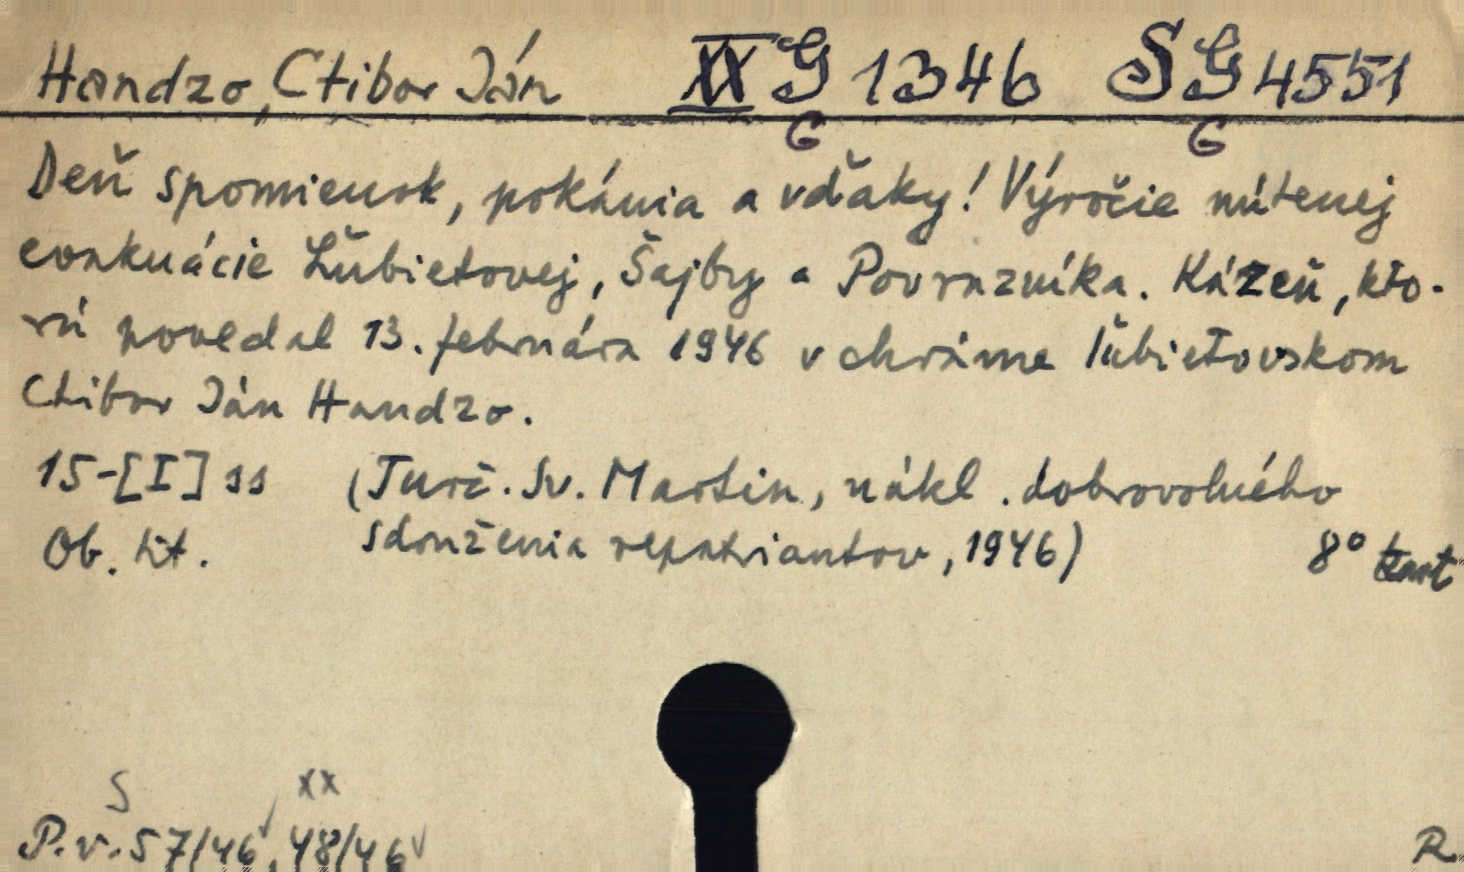 Handzo, Ctibor Ján XX G 1346 SG 4551
G G
Deň spomienok, pokánia a vďaky! Výročie nútenej
evakuácie Ľubietovej, Šajby a Povrazníka. Kázeň, kto-
rú povedal 13. februára 1946 v chráme ľubietovskom
Ctibor Ján Handzo.
15-[I] ss (Turč. Sv. Martin, nákl. dobrovoľného
Ob. tit. sdruženia repatriantov, 1946) 8°
S XX
P.v. 57/46, 48/46
R.